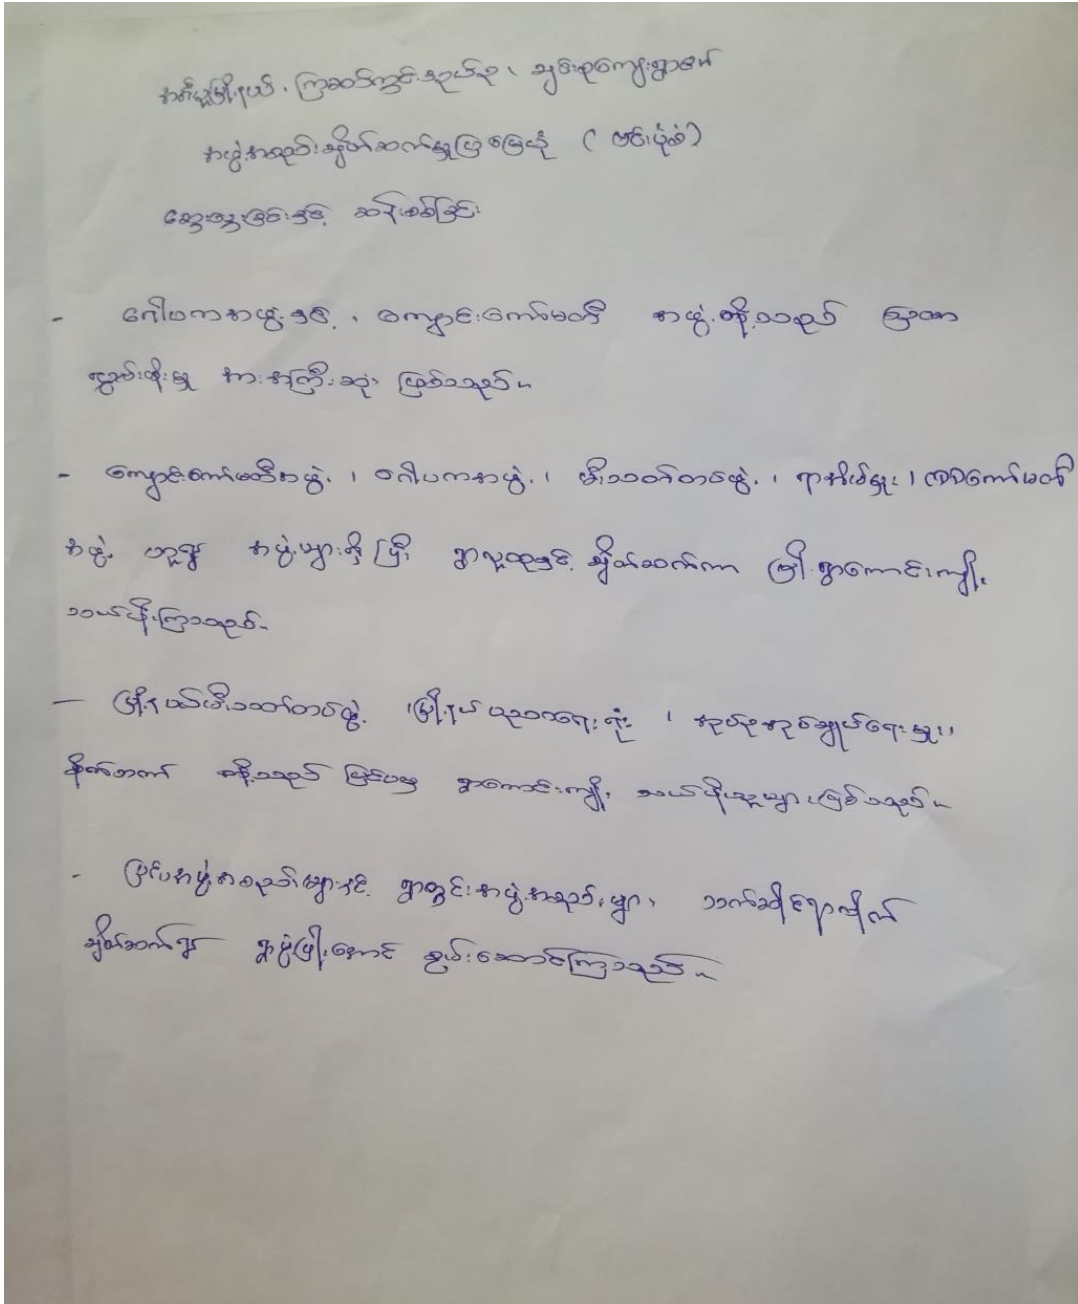 မြို့နယ်၊ ကြာဆပ်ကွင်းအုပ်စု၊ ချင်းစုကျေးရွာ၏
အဖွဲ့အစည်းချိတ်ဆက်မှုပြမြေပုံ ( ဗင်းပုံစံ )
ဆွေးနွေးခြင်းနှင့် ဆန်းစစ်ခြင်း
- ဂေါပကအဖွဲ့နှင့်၊ ကျောင်းကော်မတီ အဖွဲ့တို့သည် ရွာထဲ
လွှမ်းမိုးမှု အားအကြီးဆုံး ဖြစ်သည်။
- ကျောင်းကော်မတီအဖွဲ့၊ ဂေါပကအဖွဲ့၊ မီးသတ်တပ်ဖွဲ့၊ ရာအိမ်မှူး၊ ကော်မတီ
အဖွဲ့ ဟူ၍ အဖွဲ့များရှိပြီး ရွာလူထုနှင့် ချိတ်ဆက်ကာ မြို့ရွာကောင်းကျိုး
သယ်ပိုးကြသည်။
- မြို့နယ်မီးသတ်တပ်ဖွဲ့ ၊မြို့နယ်ပညာရေးရုံး ၊ အုပ်စုအုပ်ချုပ်ရေးမှူး၊
တို့သည် ပြင်ပမှ ရွာကောင်းကျိုး သယ်ပိုးသူများဖြစ်သည်။
- ပြင်ပအဖွဲ့အစည်းများနှင့် ရွာတွင်းအဖွဲ့အစည်းများ သက်ဆိုင်ရာလိုက်
ချိတ်ဆက်၍ ရွာဖွံ့ဖြိုးအောင် စွမ်းဆောင်ကြသည်။